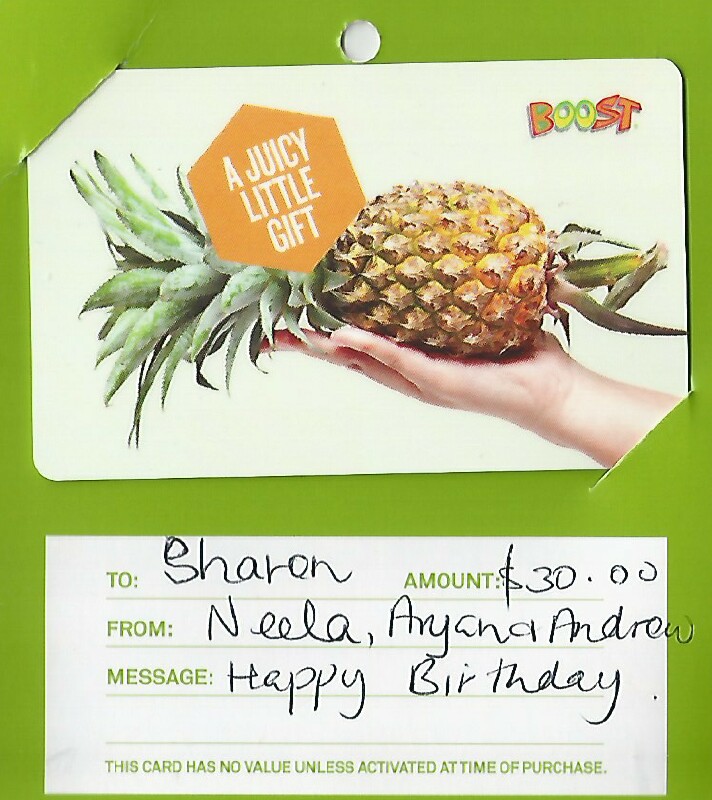 BOOST
A JUICY
LITTLE
GIFT
TO: Sharon AMOUNT: $30.00
FROM: Neela, Aryana Andrew
MESSAGE: Happy Birthday.
THIS CARD HAS NO VALUE UNLESS ACTIVATED AT TIME OF PURCHASE.